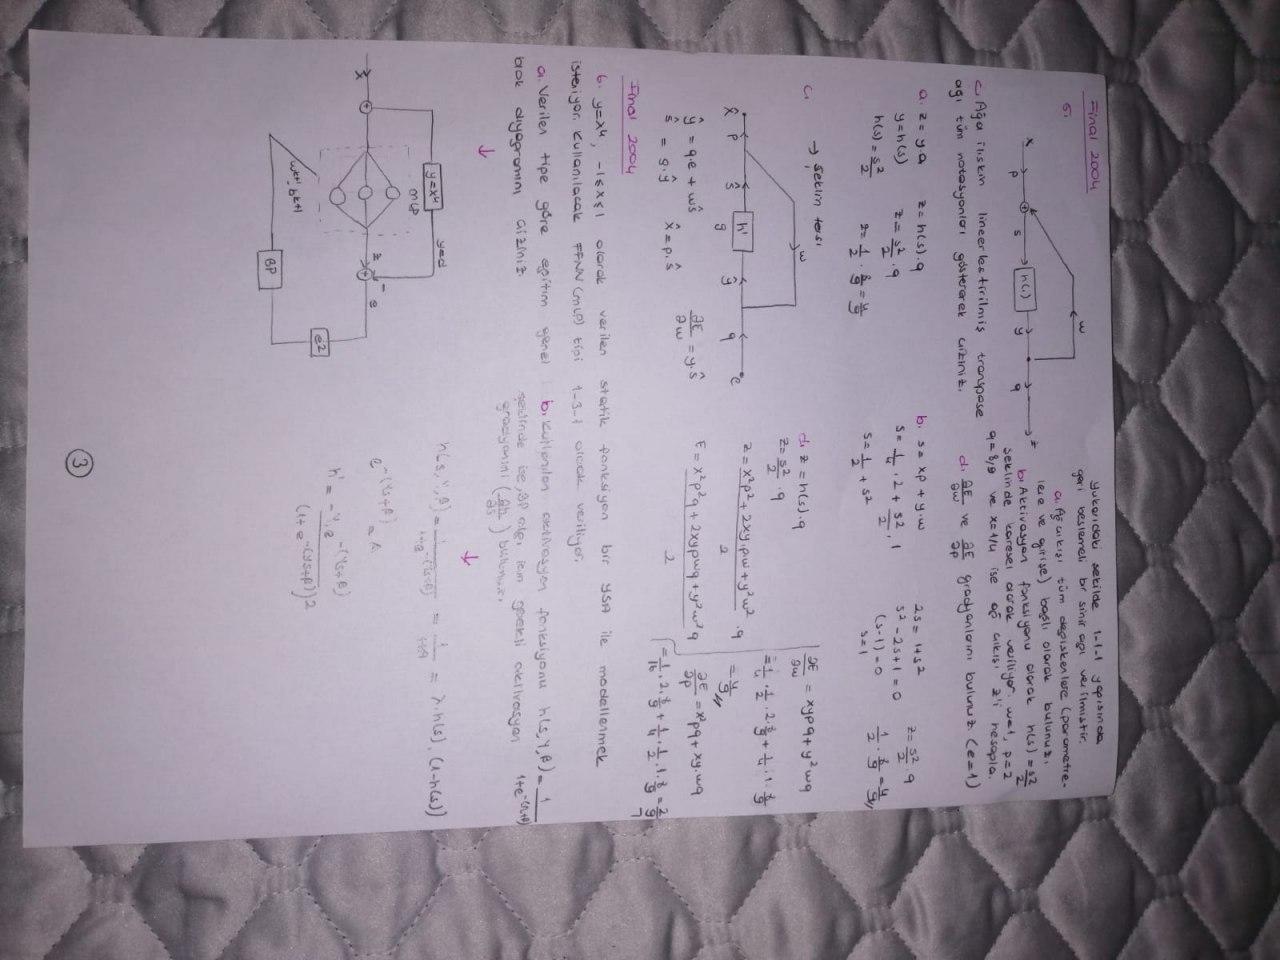 Final 2004
5.
x p s h(.) y q z
w
Yukarıdaki şekilde 1-1-1 yapısında
geri beslemeli bir sinir ağı verilmiştir.
a. Ağ çıkışı tüm değişkenlere (parametre-
lere ve girişe) bağlı olarak bulunuz.
b. Aktivasyon fonksiyonu olarak h(s) = s²/2
şeklinde karesel olarak veriliyor. w=1, p=2
q=8/9 ve x=1/4 ise ağ çıkışı z'i hesapla.
c. Ağa ilişkin lineerleştirilmiş transpose
ağı tüm notasyonları göstererek çiziniz.
d. ∂E/∂w ve ∂E/∂p gradyanlarını bulunuz. (e=1)
a. z = y q z = h(s).q
y = h(s) z = s²/2 . q
h(s) = s²/2 z = 1/2 . 8/9 = 4/9
b. s = xp + y.w
s = 1/4 . 2 + s²/2 . 1
s = 1/2 + s²
2s = 1+s²
s² - 2s + 1 = 0
(s-1) = 0
s = 1
z = s²/2 q
1/2 . 8/9 = 4/9
c. → şeklin tersi
w
x̂ p ŝ h' ŷ q e
g
ŷ = qe + wŝ
ŝ = g.ŷ x̂ = p.ŝ ∂E/∂w = y.ŝ
d. z = h(s).q
z = s²/2 . q
z = x²p² + 2xy.pw + y²w² / 2 . q
E = x²p²q + 2xypwq + y²w²q / 2
∂E/∂w = xypq + y²wq
= 1/4 . 1/2 . 2 . 8/9 + 1/4 . 1 . 8/9
= 4/9
∂E/∂p = x²pq + xy.wq
= 1/16 . 2 . 8/9 + 1/4 . 1/2 . 1 . 8/9 = 2/9
Final 2004
6. y=x⁴, -1≤x≤1 olarak verilen statik fonksiyon bir YSA ile modellenmek
isteniyor. Kullanılacak FFNN (MLP) tipi 1-3-1 olarak veriliyor.
a. Verilen tipe göre eğitim genel
blok diyagramını çiziniz.
b. Kullanılan aktivasyon fonksiyonu h(s,γ,β) = 1/1+e^-(γs+β)
şeklinde ise, BP için gerekli aktivasyon
gradyanını (∂h/∂s) bulunuz.
x y=x⁴ y=d
MLP
z - e
w^k+1, b^k+1
BP e2
h(s,γ,β) = 1/1+e^-(γs+β) = 1/1+A = λ.h(s).(1-h(s))
e^-(γs+β) = A
h' = -γ.e^-(γs+β) / (1+e^-(γs+β))²
3